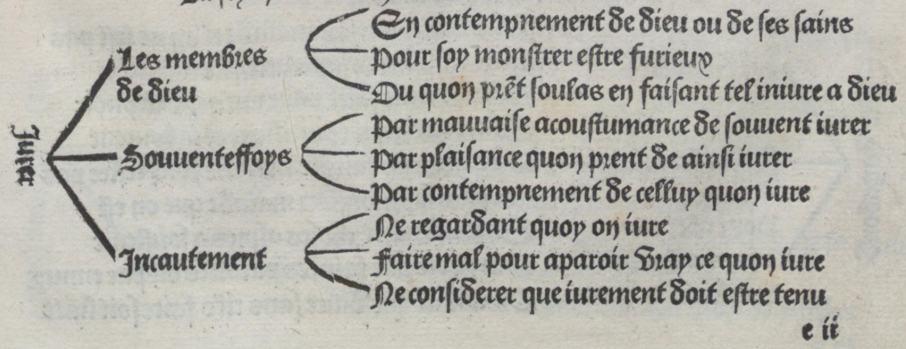 Jurer
Les membres
de dieu
En contempnement de dieu ou de ses sains
Pour soy monstrer estre furieux
Ou quon prẽt soulas en faisant tel iniure a dieu
Souuenteffoys
Par mauuaise acoustumance de souuent iurer
Par plaisance quon prent de ainsi iurer
Par contempnement de celluy quon iure
Incautement
Ne regardant quoy on iure
Faire mal pour aparoir vray ce quon iure
Ne considerer que iurement doit estre tenu
e ii